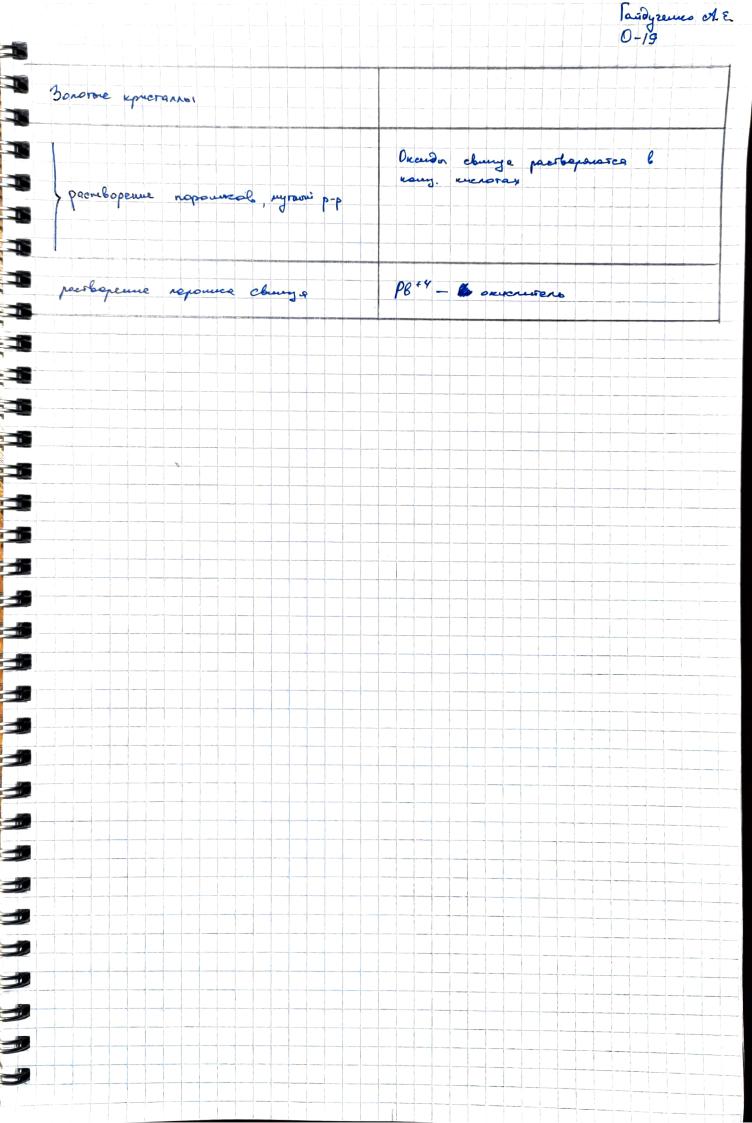 Гайдученко А.Е.
О-19
Золотые кристаллы
растворение порошков, мутный р-р
Оксиды свинца растворяются в
конц. кислотах
растворение порошка свинца
Pb⁺⁴ – окислитель